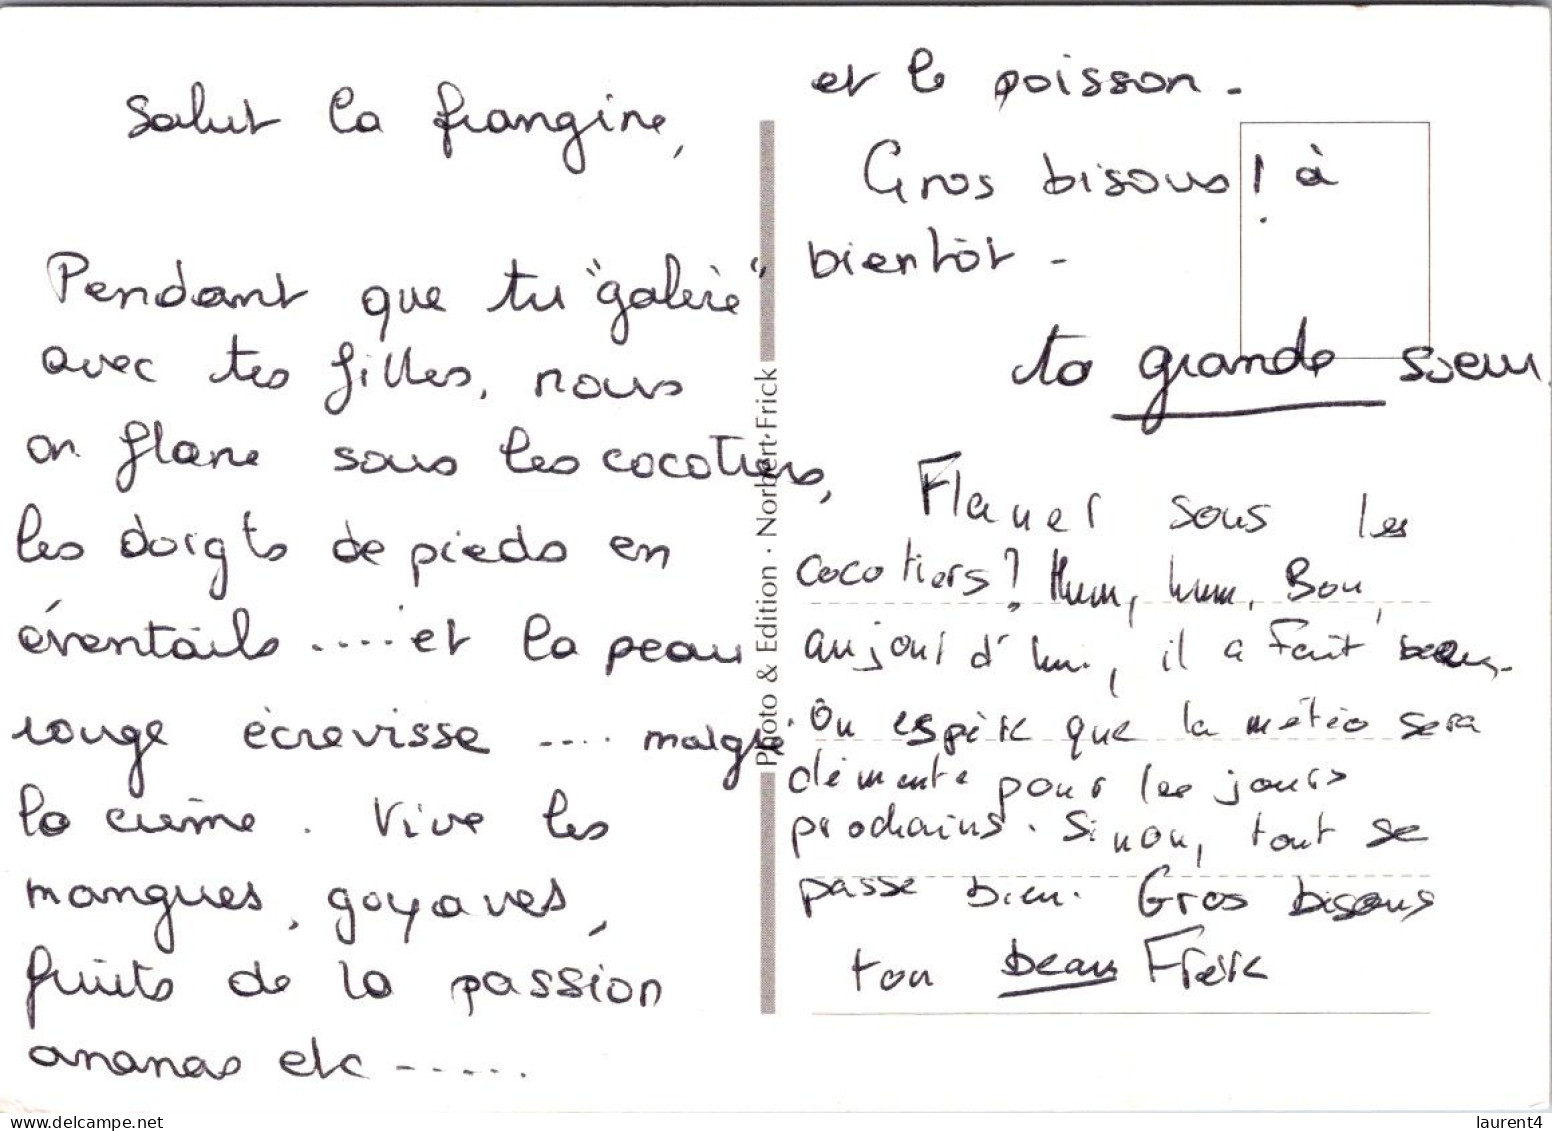 Salut la frangine,
Pendant que tu "galère"
avec tes filles, nous
on flane sous les cocotiers,
les doigts de pieds en
éventails .... et la peau
rouge écrevisse .... malgré
la crème. Vive les
mangues, goyaves,
fruits de la passion
ananas etc -....
et le poisson -
Gros bisous ! à
bientôt -
ta grande soeur
Flaner sous les
cocotiers ? Hum, hum, Bon,
aujourd'hui, il a fait beau.
On espère que la météo sera
clémente pour les jours
prochains. Sinon, tout se
passe bien. Gros bisous
ton beau Frère
Photo & Edition · Norbert Frick
laurent4